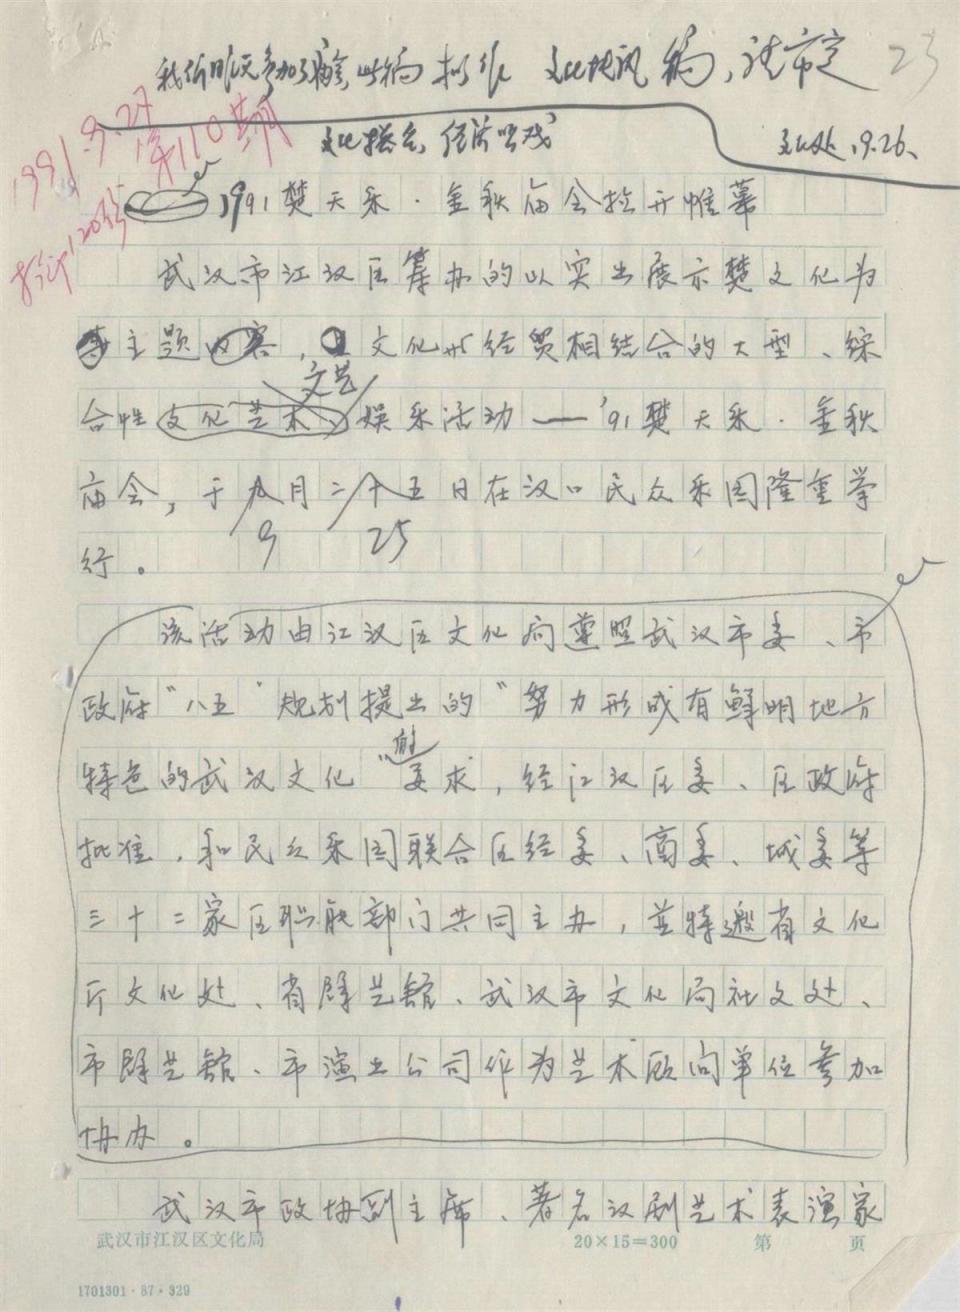 我们昨天参加了庙会，此稿拟作文化快讯稿，请审定
23
文化处 9.26.
1991.9.27
第110期
打印120份
文化搭台，经济唱戏
1991楚天乐·金秋庙会拉开帷幕
武汉市江汉区筹办的以突出展示楚文化为
主题内容，以文化与经贸相结合的大型、综
文艺
合性文化艺术、娱乐活动——'91楚天乐·金秋
庙会，于九月二十五日在汉口民众乐园隆重举
9 25
行。
该活动由江汉区文化局遵照武汉市委、市
政府"八五"规划提出的"努力形成有鲜明地方
的
特色的武汉文化"要求，经江汉区委、区政府
批准，和民众乐园联合区经委、商委、城委等
三十二家区职能部门共同主办，并特邀省文化
厅文化处、省群艺馆、武汉市文化局社文处、
市群艺馆、市演出公司作为艺术顾问单位参加
协办。
武汉市政协副主席、著名汉剧艺术表演家
武汉市江汉区文化局 20×15=300 第 页
1701301·87·329